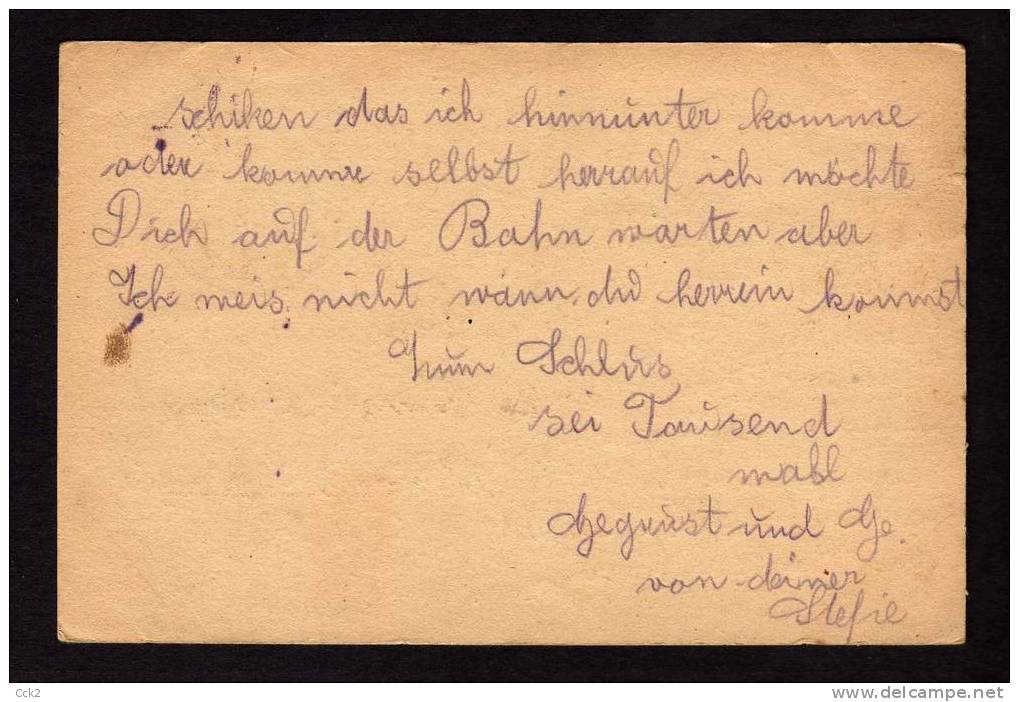 schiken das ich hinnunter komme
oder komme selbst herrauf ich möchte
Dich auf der Bahn warten aber
Ich weis nicht wann du herrein kommst
Zum Schlus
sei Tausend
mahl
Gegrüst und Ge.
von deiner
Stefie
Cck2
http://www.delcampe.net